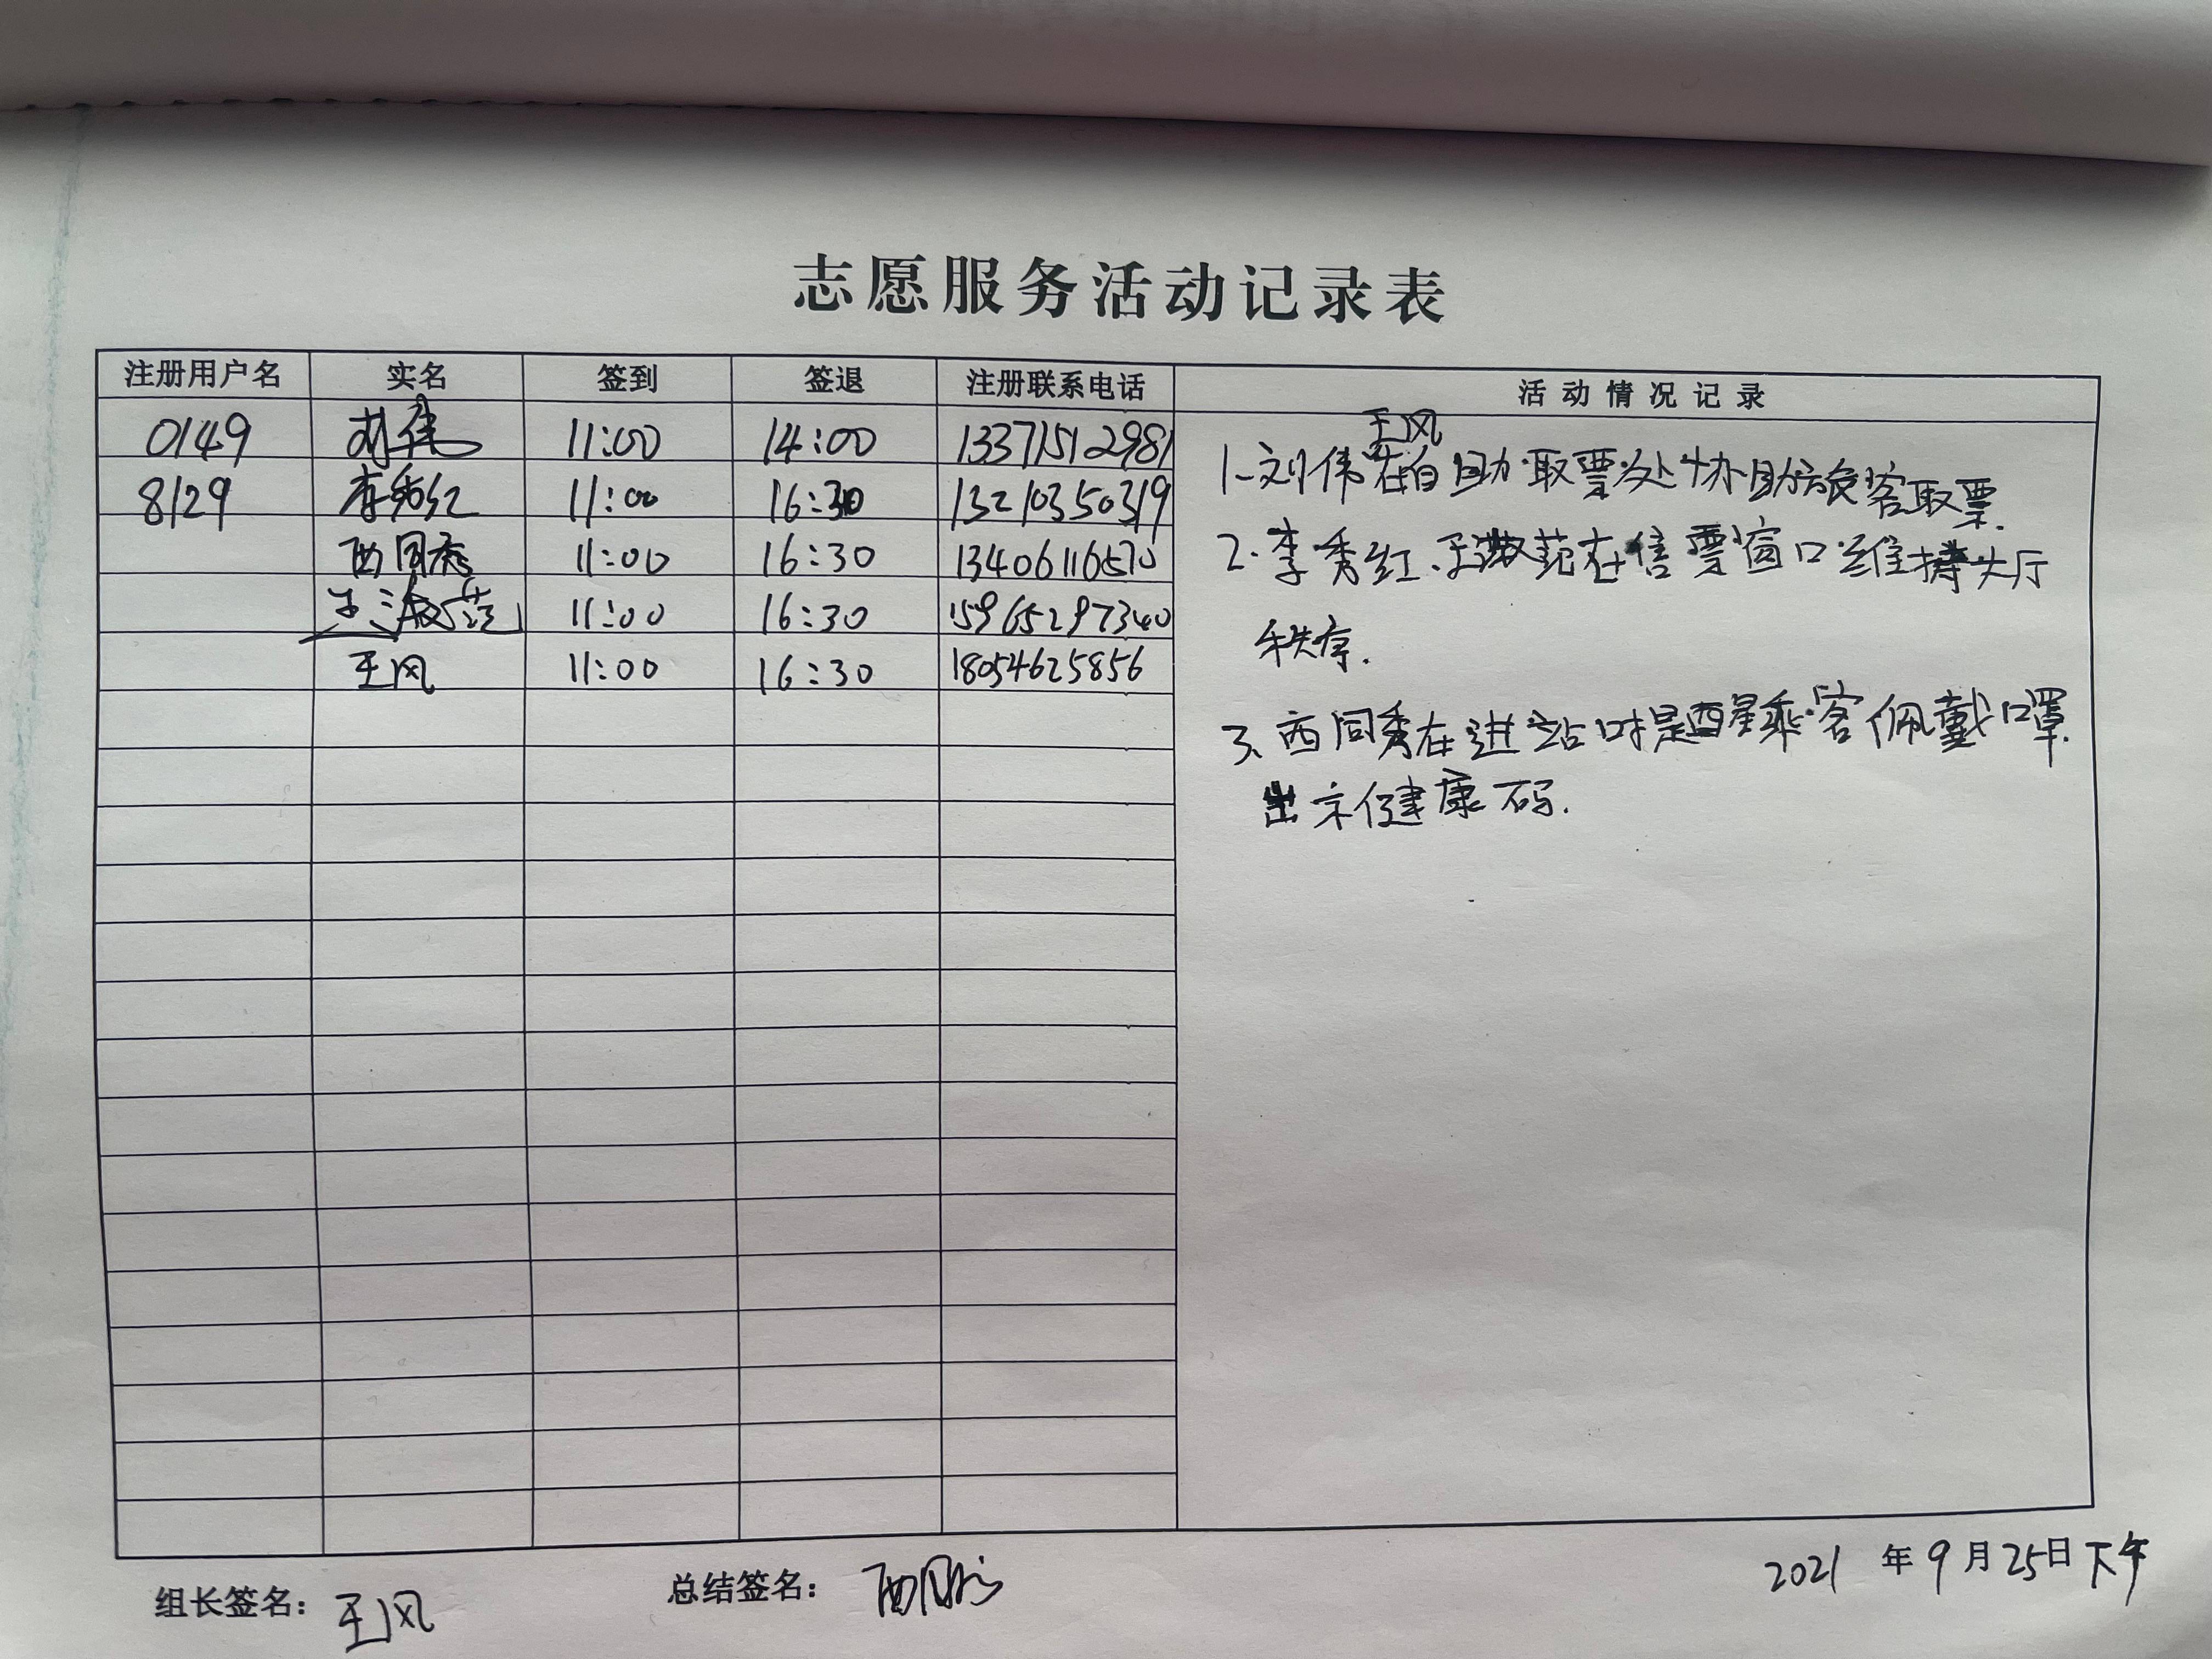 志愿服务活动记录表
注册用户名 实名 签到 签退 注册联系电话 活动情况记录
0149 刘伟 11:00 14:00 13371512981
8129 李秀红 11:00 16:30 13210350319
西同秀 11:00 16:30 13406116570
于淑范 11:00 16:30 15965297340
王风 11:00 16:30 18054625856
王风
1.刘伟在自助取票处协助旅客取票.
2.李秀红.于淑范在售票窗口维持大厅
秩序.
3.西同秀在进站口时是醒乘客佩戴口罩.
出示健康码.
组长签名: 王风
总结签名: 西同秀
2021年9月25日下午